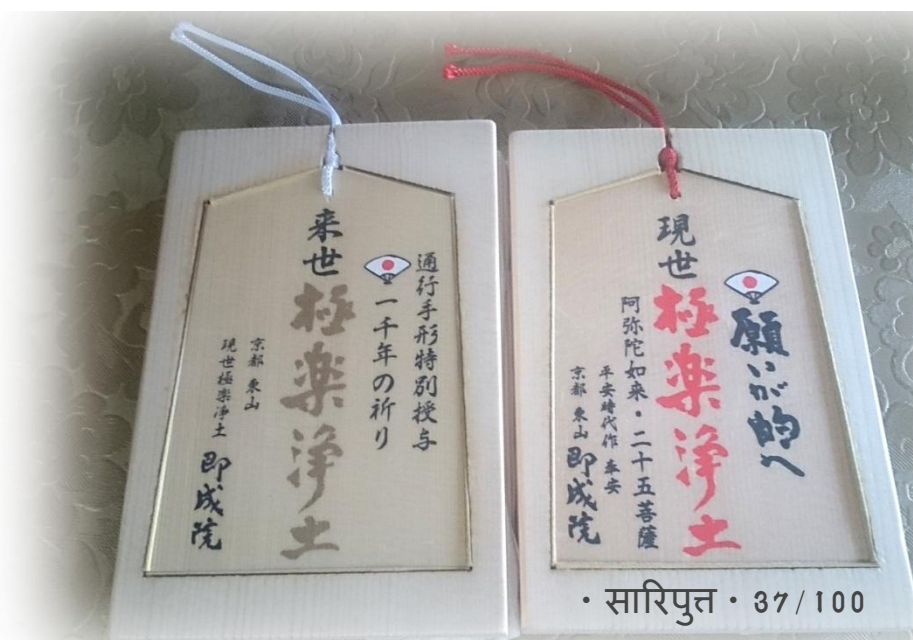 通行手形特別授与
一千年の祈り
来世極楽浄土
京都 東山
現世極楽浄土 即成院
願いが的へ
現世極楽浄土
阿弥陀如来・二十五菩薩
平安時代作 奉安
京都 東山 即成院
・सारिपुत्त・37/100